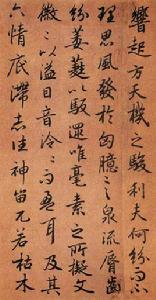 響起方天機之駿利夫何紛而不
理思風發於胷臆言泉流脣齒
紛葳蕤以馺遝唯毫素之所擬文
徽〻以溢目音泠〻而盈耳及其
六情底滯志往神留兀若枯木